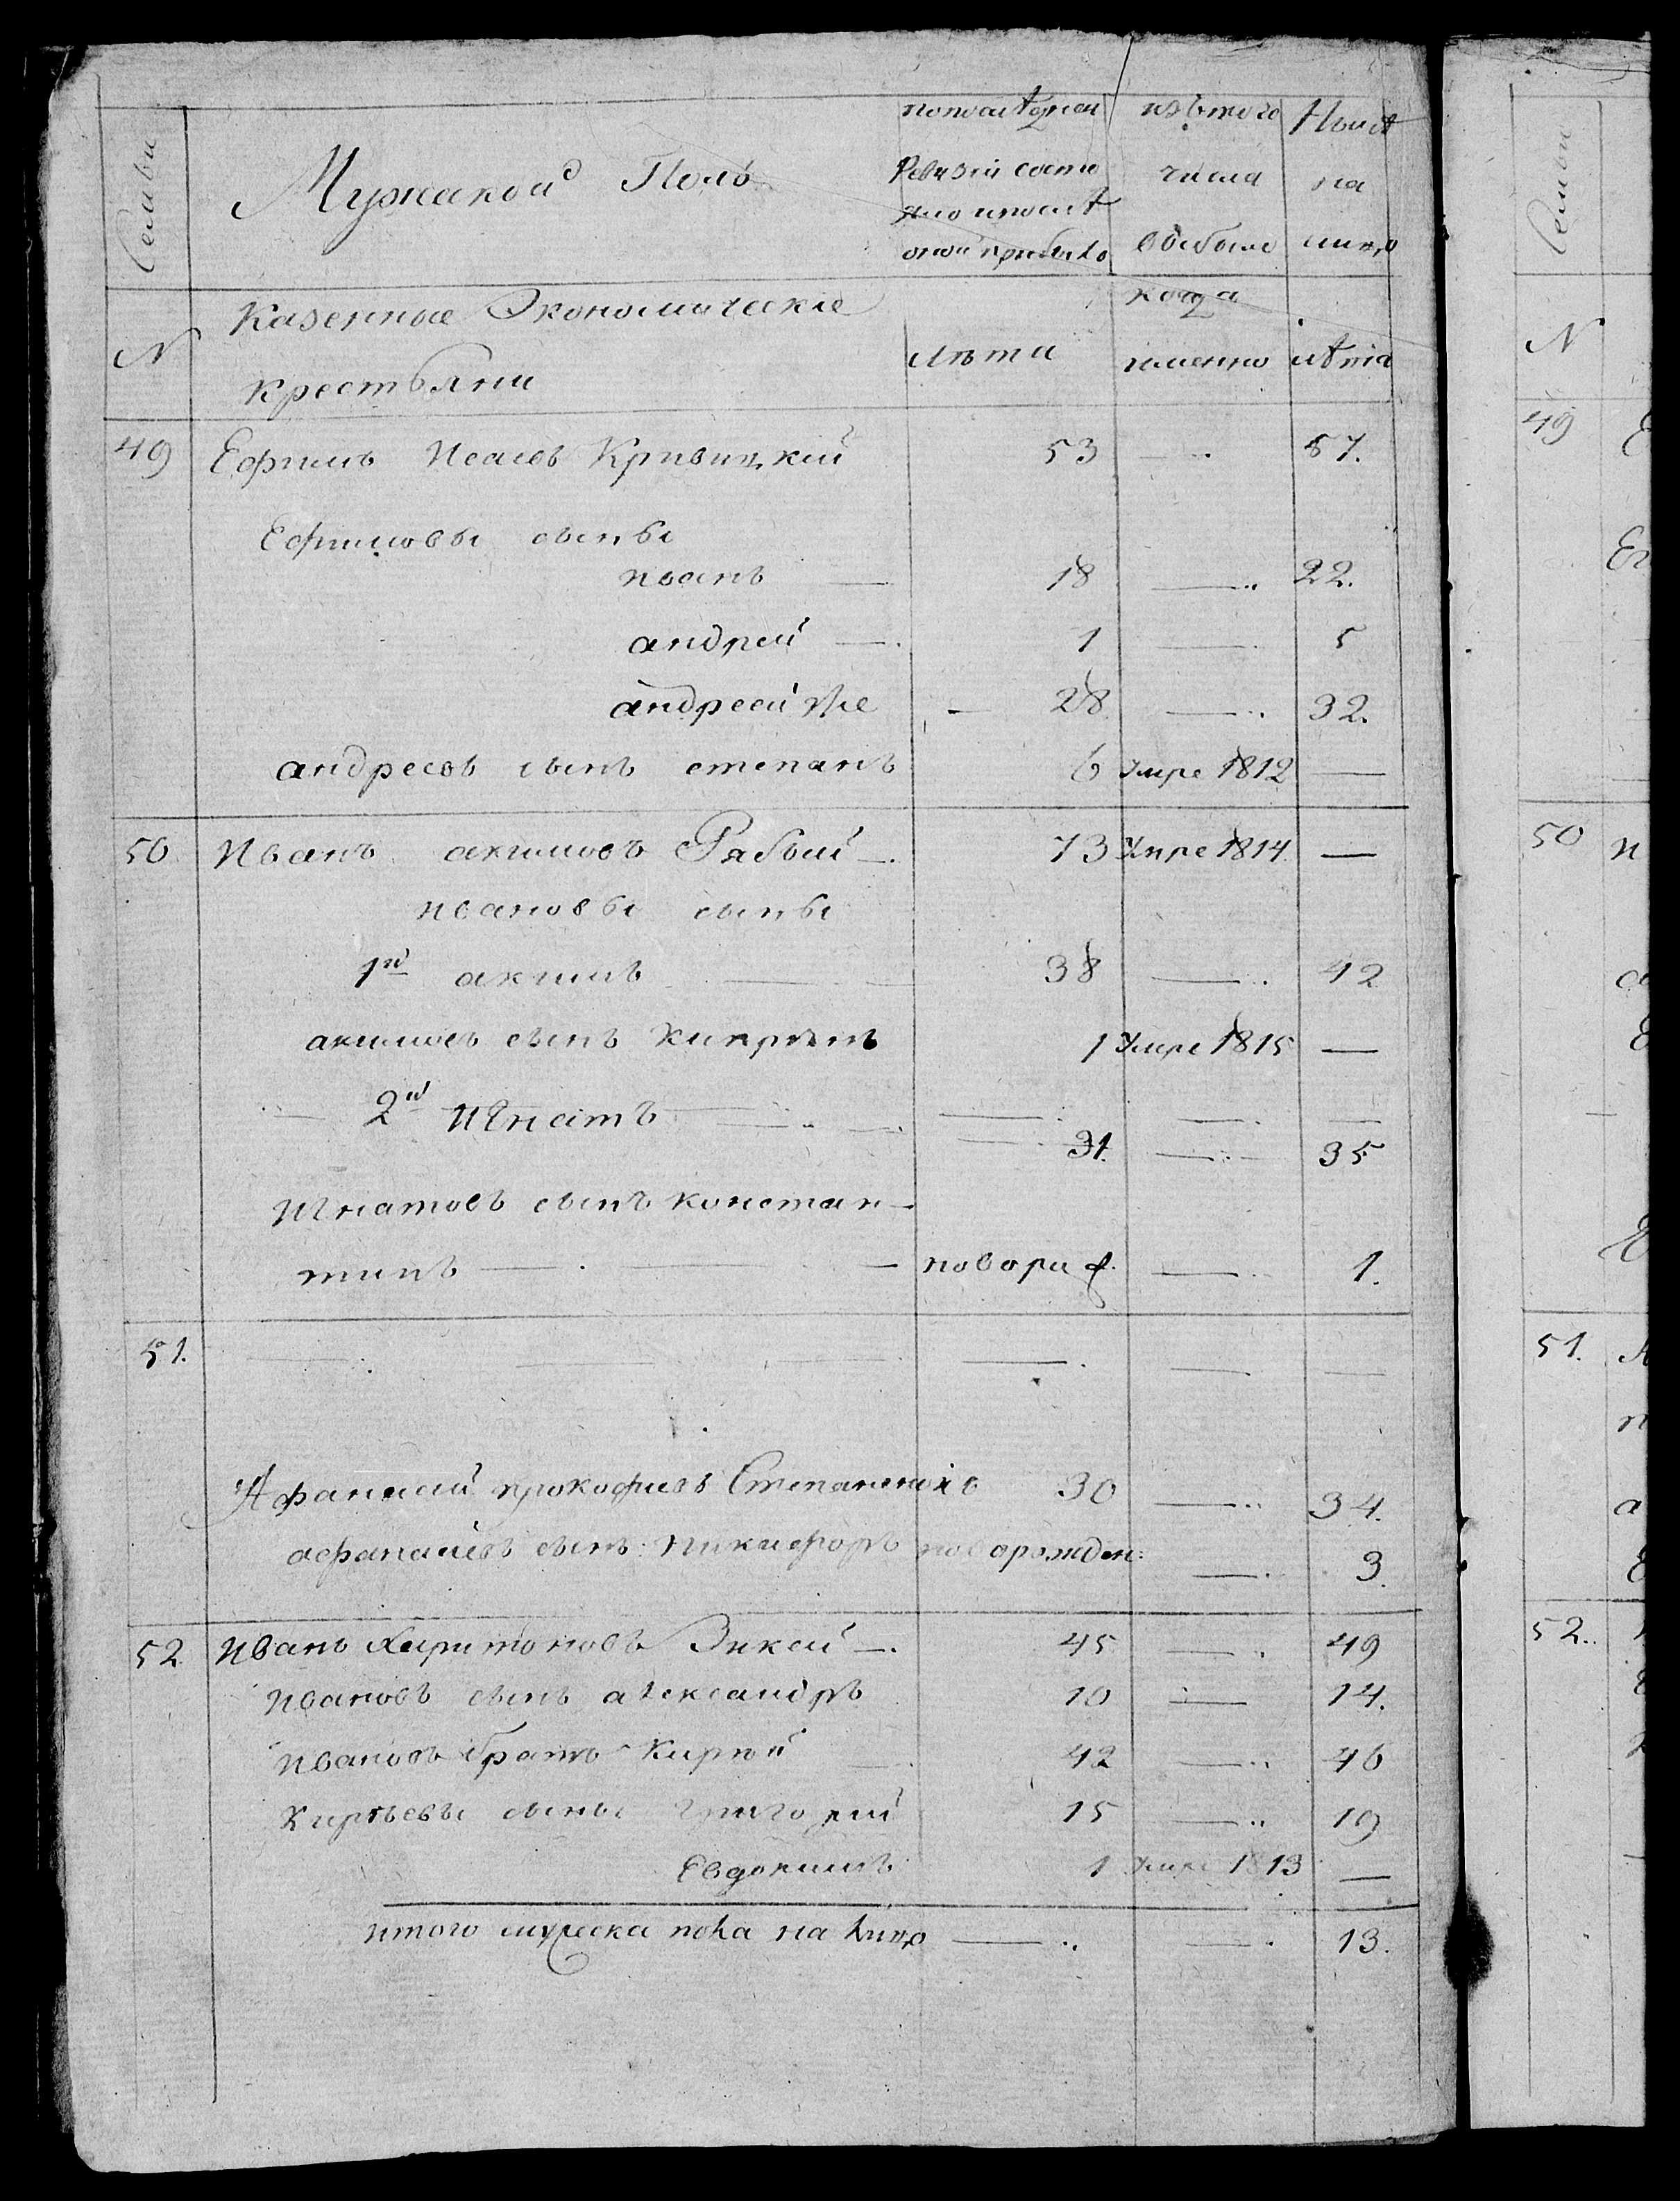 Семьи Мужеской Полъ
попоследней изътого Ныне
Ревизiи состо числа на
яло ипосле
оной прибыло выбыло лицо
Казенные Экономическiе когда
N крестьяни лѣта именно лѣта
49 Ефимъ Исаевъ Кривицкiй 53 — 57.
Ефимовы сыны
иванъ — 18 — 22.
андрей — 1 — 5
андрей же — 28 — 32.
андреевъ сынъ степанъ 6 Умре 1812 —
50 Иванъ акимовъ Рябый — 73 Умре 1814 —
ивановы сыны
1й акимъ — 38 — 42
акимовъ сынъ 1 Умре 1815 —
2й Игнатъ — 31. — 35
Игнатовъ сынъ констан-
тинъ — новорож. — 1.
51. — — — — — —
Афанасий прокофиевъ 30 — 34.
афанасиевъ сынъ: никифоръ новорожден: — 3.
52 Иванъ Харитоновъ Зикей — 45 — 49
Ивановъ сынъ александръ 10 — 14.
Ивановъ братъ Кирѣй — 42 — 46
Кирѣевы сыны григорий 15 — 19
Евдокимъ 1 Умре 1813 —
итого мужеска пола на лицо — — 13.
Семьи
N
49
50
51.
52.